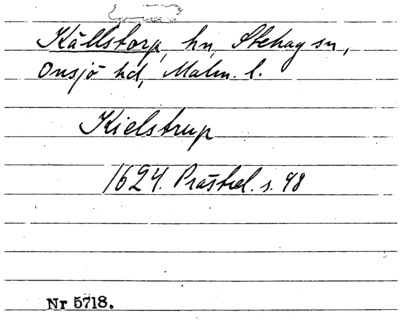 Källstorp, hn, Stehag sn,
Onsjö hd, Malm. l.
Kielstrup
1624. Prästrel. s. 98
Nr 5718.